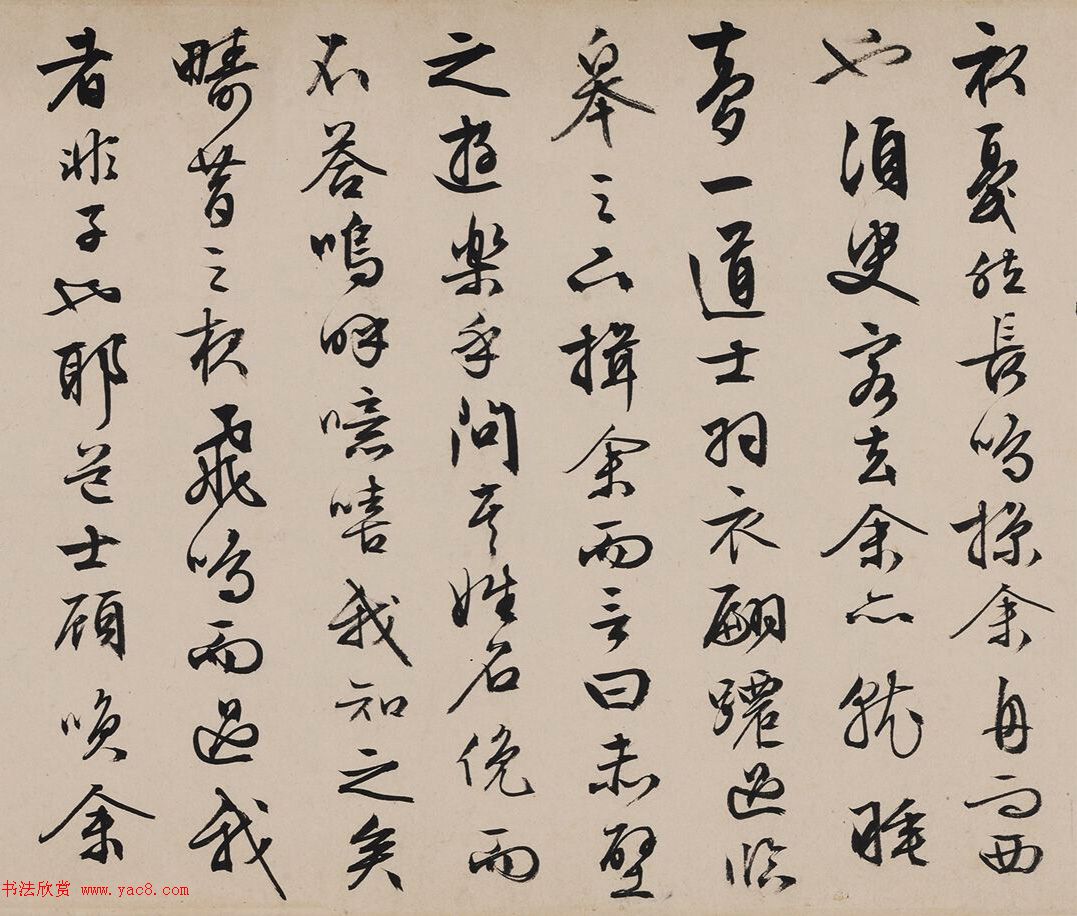 衣戛然長鳴掠余舟而西
也須臾客去余亦就睡
夢一道士羽衣翩躚過臨
皋之下揖余而言曰赤壁
之遊樂乎問其姓名俛而
不答嗚呼噫嘻我知之矣
疇昔之夜飛鳴而過我
者非子也耶道士顧咲余
书法欣赏 www.yac8.com